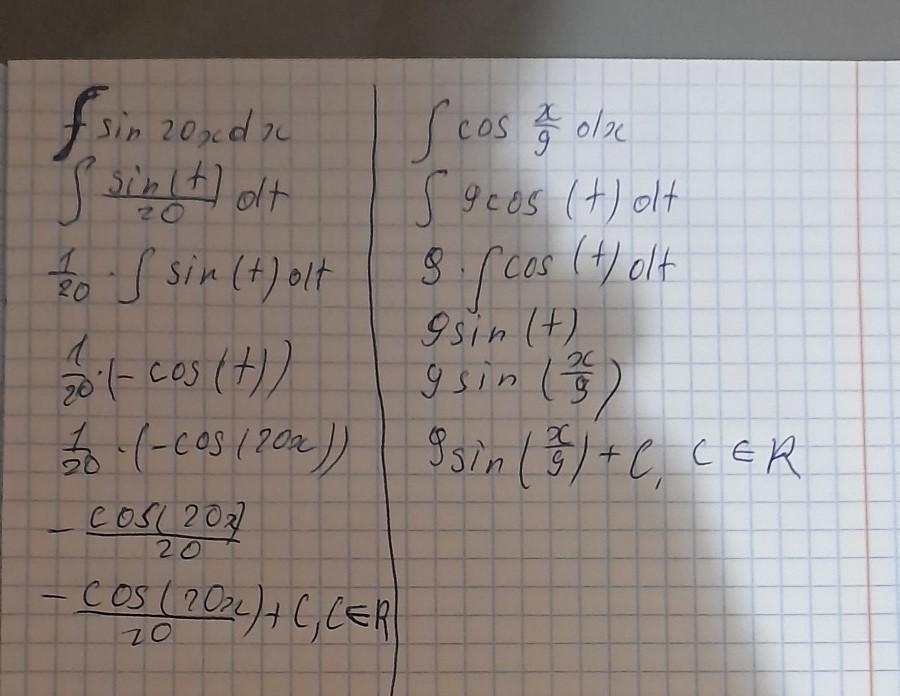 ∫ sin 20x dx
∫ sin(t)/20 dt
1/20 · ∫ sin(t) dt
1/20 · (- cos(t))
1/20 · (-cos(20x))
- cos(20x)/20
- cos(20x)/20 + C, C ∈ R
∫ cos x/9 dx
∫ 9cos (t) dt
9 · ∫ cos (t) dt
9sin (t)
9sin (x/9)
9sin (x/9) + C, C ∈ R